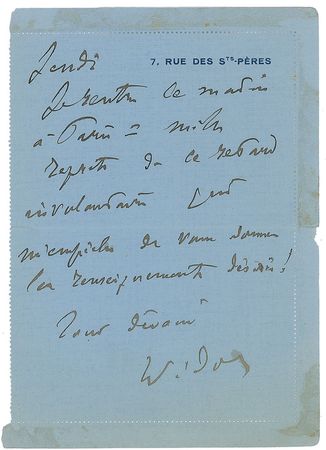 7, RUE DES Sᵀˢ-PÈRES
Jeudi
Je rentre ce matin
à Paris = mille
regrets de ce retard
involontaire qui
m'empêche de vous donner
les renseignements désirés !
Tout dévoué
Widor